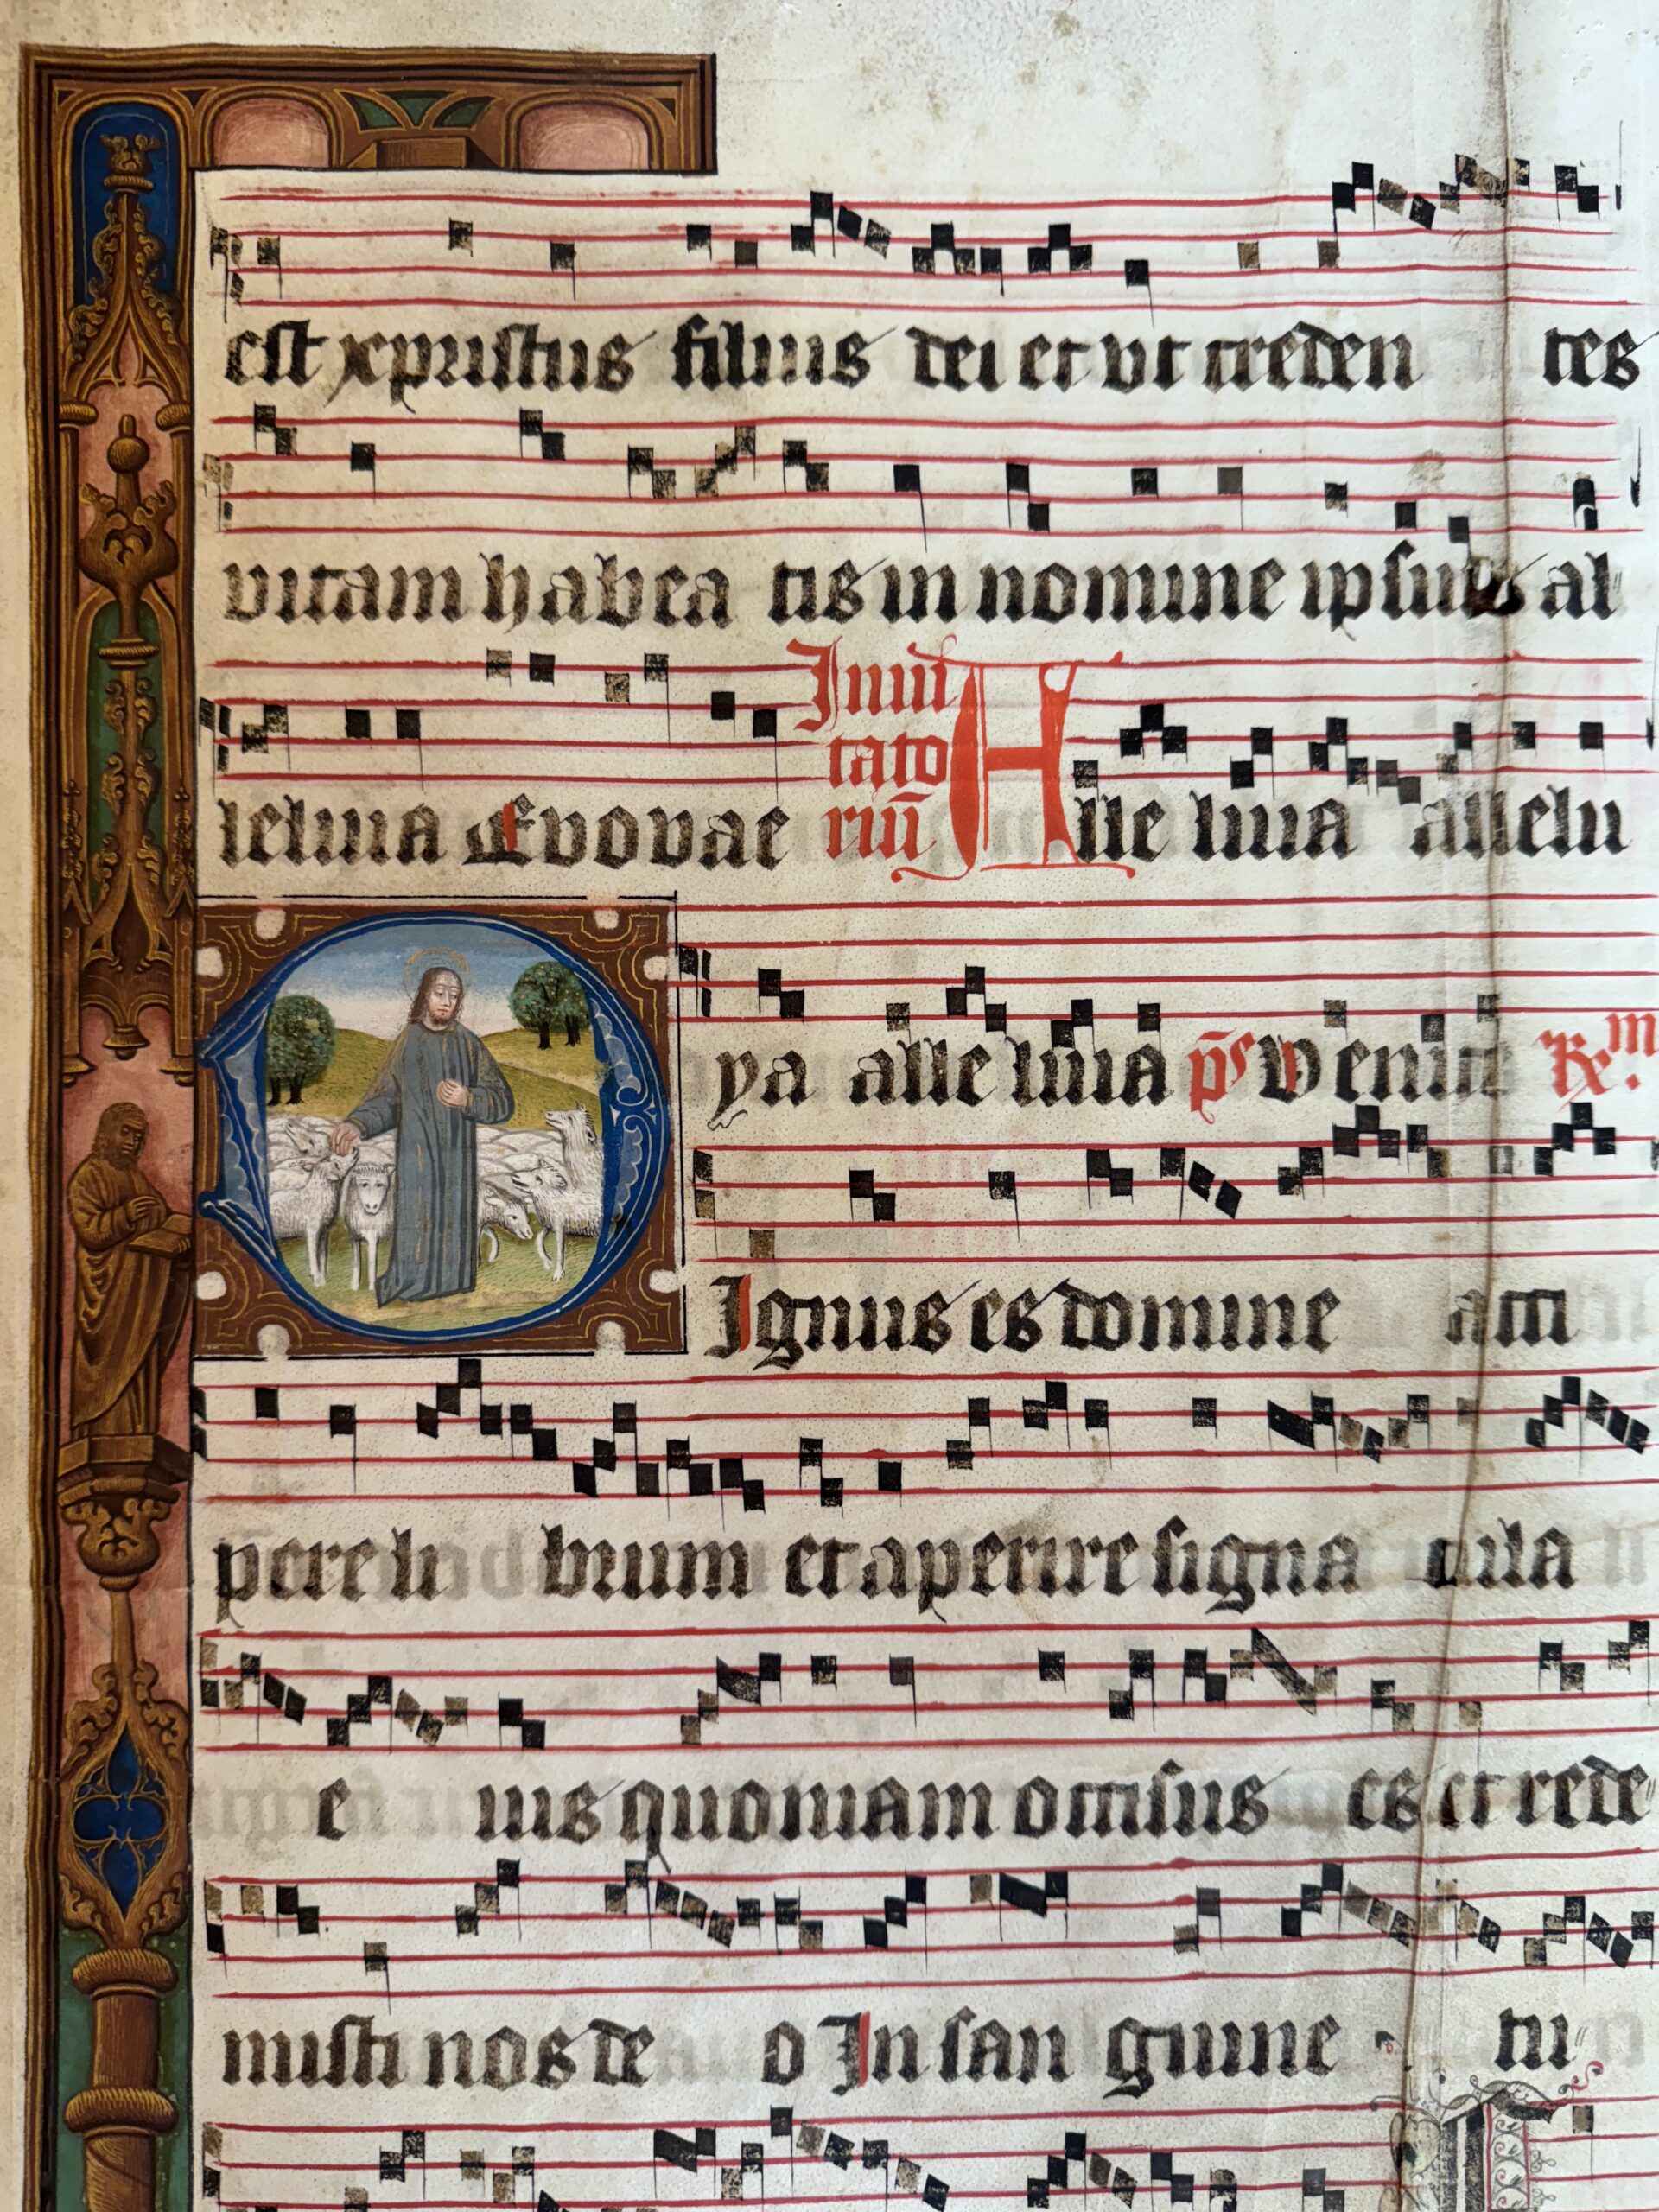 est xpristus filius dei et vt creden tes
vitam habea tis in nomine ipsius al
leluia Evovae Inui tato riū Alle luia allelu
ya alle luia p̄s Venite Rx.m
D Ignus es domine acci
pere li brum et aperire signa cula
e ius quoniam occisus es et rede
misti nos de o In san guine tu